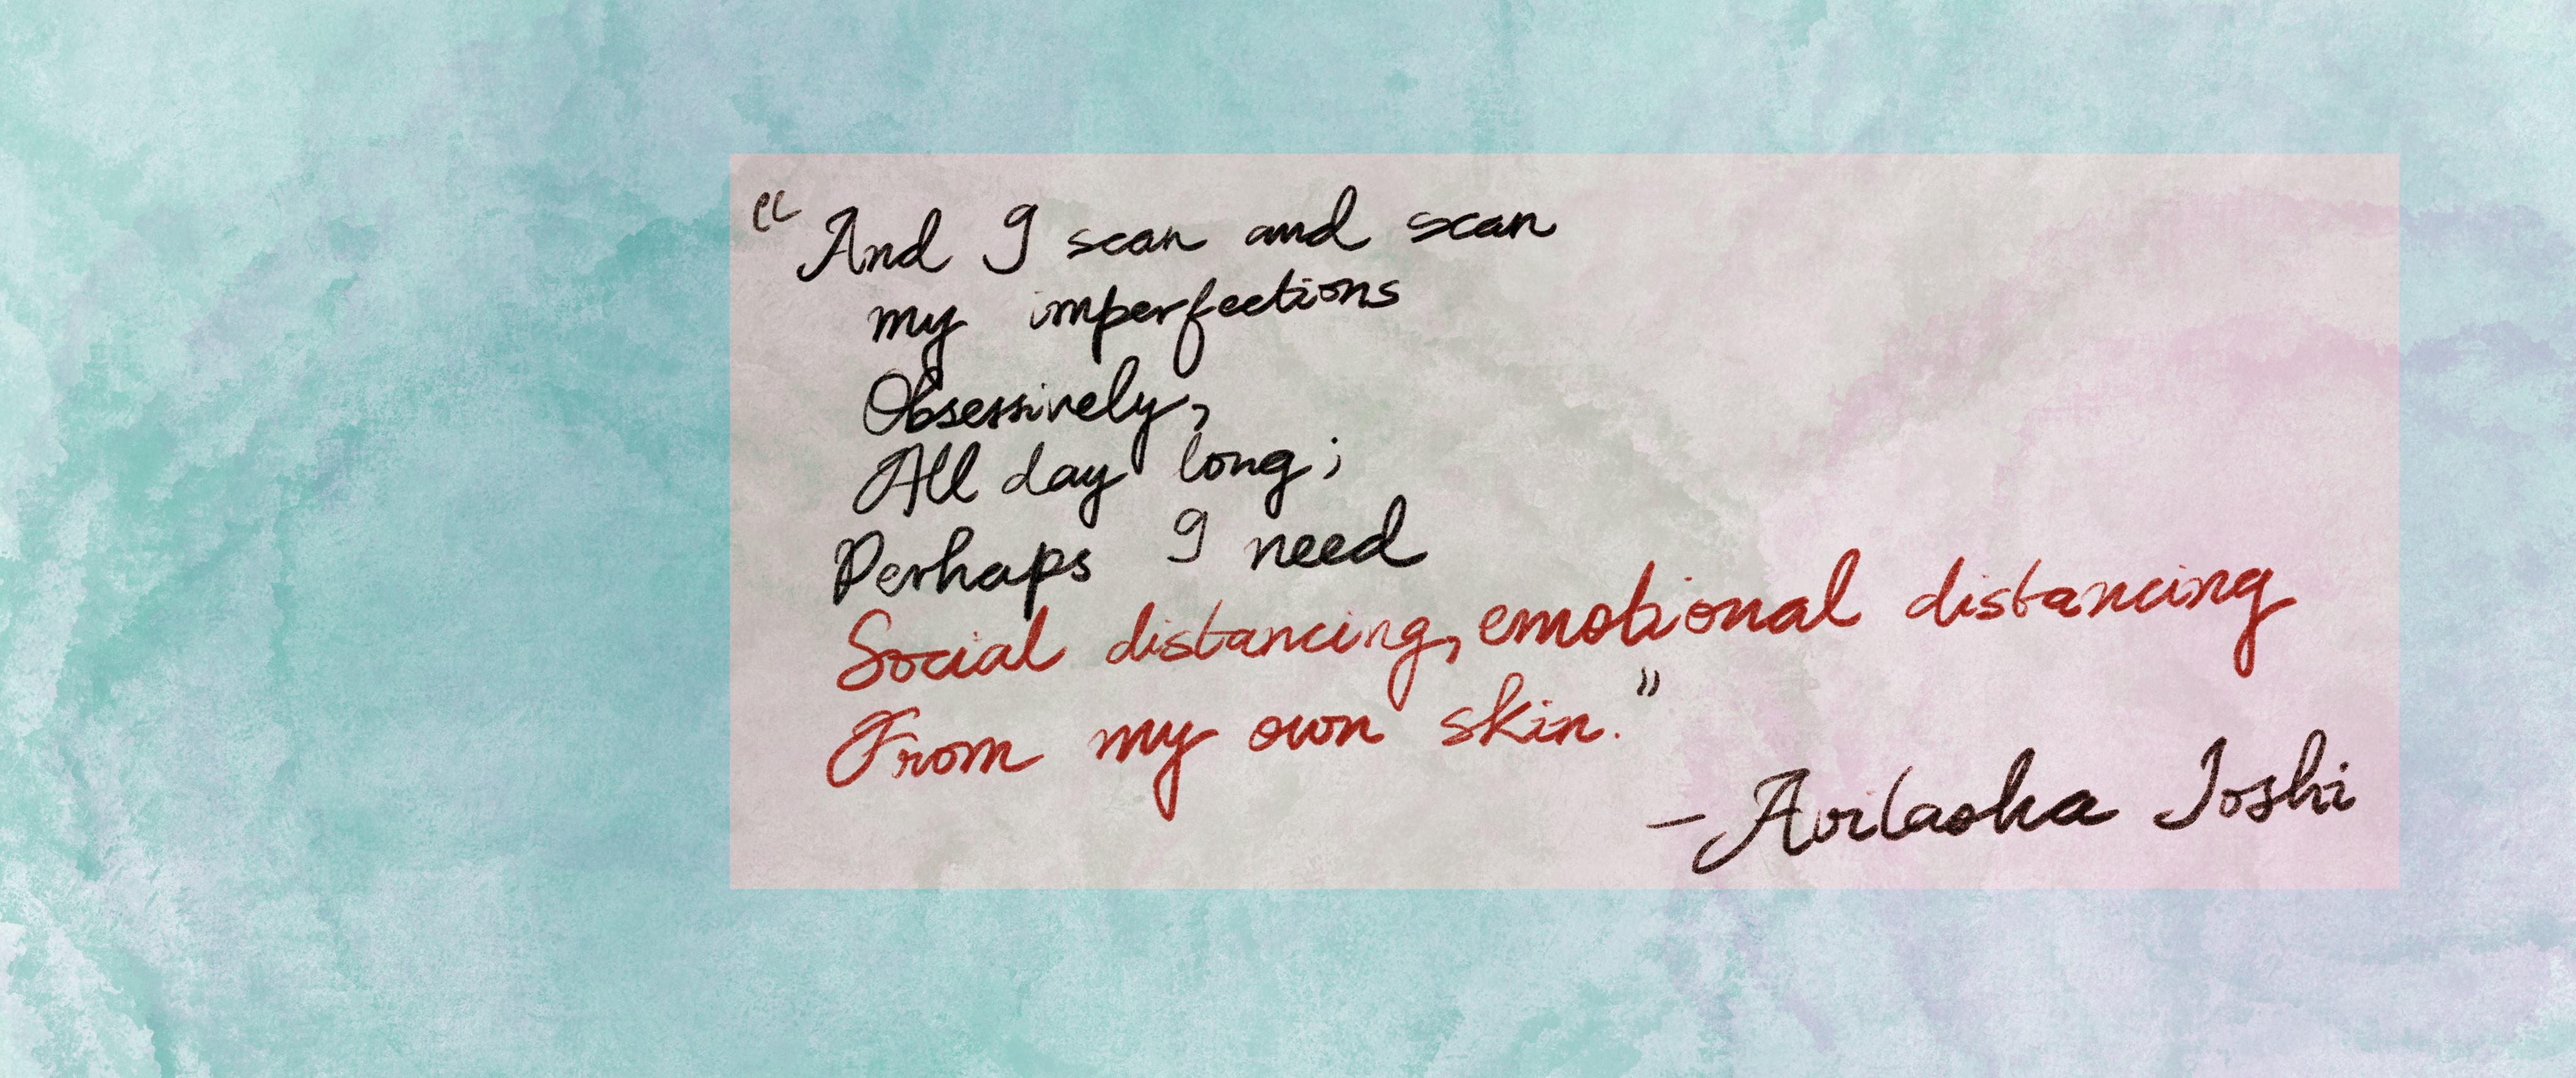 “And I scan and scan
my imperfections
Obsessively,
All day long;
Perhaps I need
Social distancing, emotional distancing
From my own skin.”
- Joshi